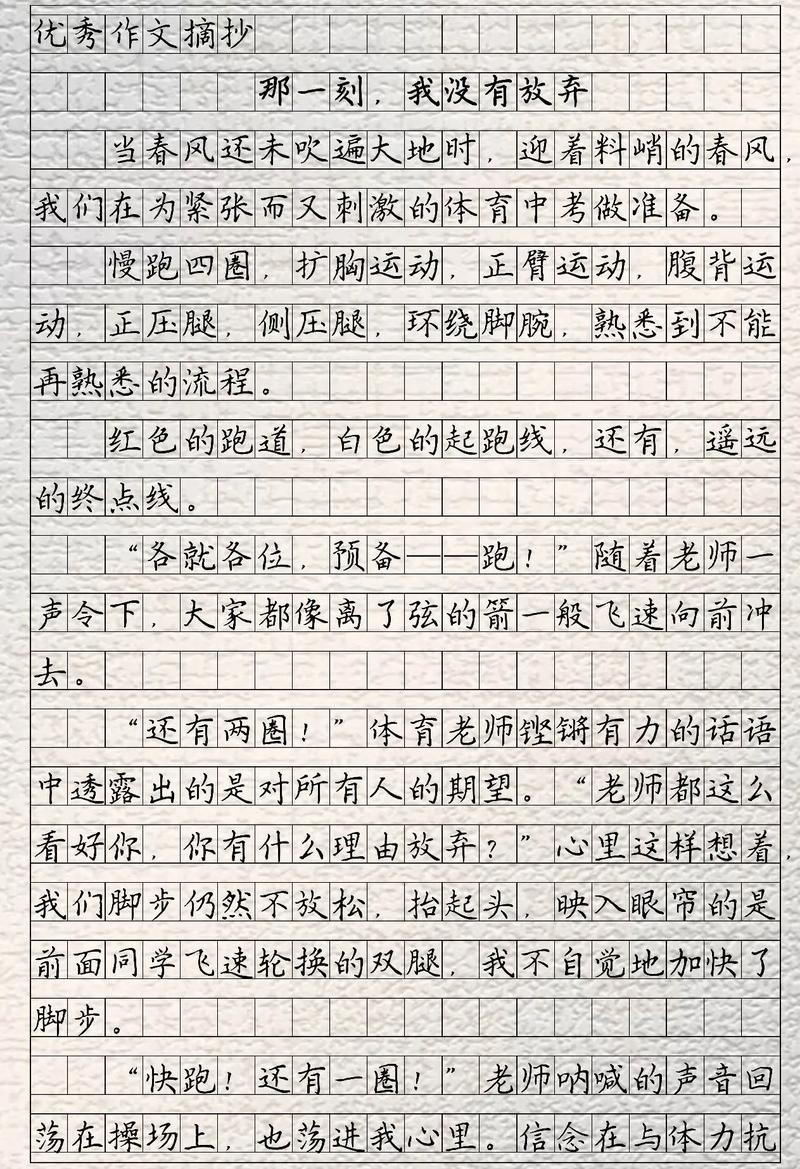 优秀作文摘抄
那一刻，我没有放弃
当春风还未吹遍大地时，迎着料峭的春风，
我们在为紧张而又刺激的体育中考做准备。
慢跑四圈，扩胸运动，正臂运动，腹背运
动，正压腿，侧压腿，环绕脚腕，熟悉到不能
再熟悉的流程。
红色的跑道，白色的起跑线，还有，遥远
的终点线。
“各就各位，预备——跑！”随着老师一
声令下，大家都像离了弦的箭一般飞速向前冲
去。
“还有两圈！”体育老师铿锵有力的话语
中透露出的是对所有人的期望。“老师都这么
看好你，你有什么理由放弃？”心里这样想着，
我们脚步仍然不放松，抬起头，映入眼帘的是
前面同学飞速轮换的双腿，我不自觉地加快了
脚步。
“快跑！还有一圈！”老师呐喊的声音回
荡在操场上，也荡进我心里。信念在与体力抗